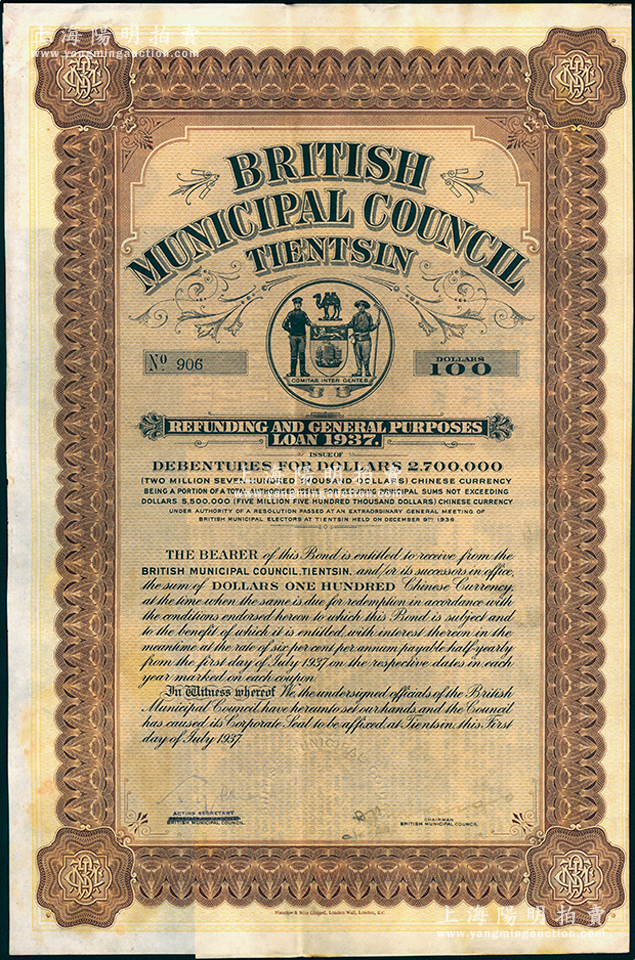 上海陽明拍賣
www.yangmingauction.com
BRITISH
MUNICIPAL COUNCIL
TIENTSIN
COMITAS INTER GENTES
No. 906
DOLLARS
100
REFUNDING AND GENERAL PURPOSES
LOAN 1937.
ISSUE OF
DEBENTURES FOR DOLLARS 2,700,000
(TWO MILLION SEVEN HUNDRED THOUSAND DOLLARS) CHINESE CURRENCY
BEING A PORTION OF A TOTAL AUTHORISED ISSUE FOR REDUCING PRINCIPAL SUMS NOT EXCEEDING
DOLLARS 5,500,000 (FIVE MILLION FIVE HUNDRED THOUSAND DOLLARS) CHINESE CURRENCY
UNDER AUTHORITY OF A RESOLUTION PASSED AT AN EXTRAORDINARY GENERAL MEETING OF
BRITISH MUNICIPAL ELECTORS AT TIENTSIN HELD ON DECEMBER 9TH 1936
上海陽明拍賣
www.yangmingauction.com
THE BEARER of this Bond is entitled to receive from the
BRITISH MUNICIPAL COUNCIL, TIENTSIN, and/or its successors in office,
the sum of DOLLARS ONE HUNDRED Chinese Currency
at the time when the same is due for redemption in accordance with
the conditions endorsed hereon to which this Bond is subject and
to the benefit of which it is entitled, with interest thereon in the
meantime at the rate of six per cent per annum, payable half-yearly
from the first day of July 1937 on the respective dates in each
year marked on each coupon
In Witness whereof We, the undersigned officials of the British
Municipal Council, have hereunto set our hands, and the Council
has caused its Corporate Seal to be affixed, at Tientsin, this First
day of July 1937
ACTING SECRETARY
BRITISH MUNICIPAL COUNCIL.
CHAIRMAN
BRITISH MUNICIPAL COUNCIL.
London Wall, London, E.C.
上海陽明拍賣
www.yangmingauction.com